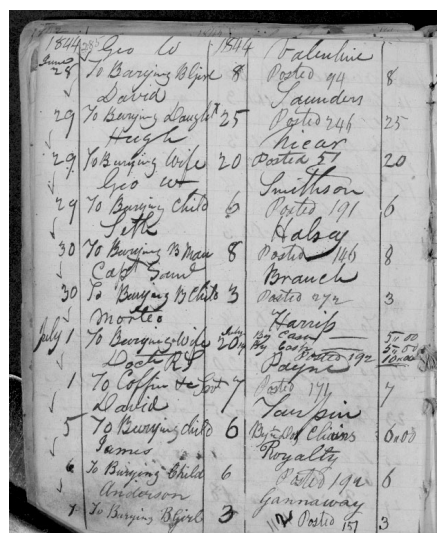 1844 Geo W 1844 Valentine
June 28 To Burying B Girl 8 Posted 94 8
David Saunders
29 To Burying Daught 25 Posted 246 25
Hugh Nicar
29 To Burying Wife 20 Posted 51 20
Geo W Smithson
29 To Burying Child 6 Posted 191 6
Seth Halsey
30 To Burying B Man 8 Posted 146 8
Capt Saml Branch
30 To Burying B Child 3 Posted 272 3
Harris
July 1 To Burying Wife 20 By Cash 5,,00
By Cash 5,,00
Posted 192 10,,00
Doctr Payne
1 To Coffin &c 7 Posted 171 7
David
5 To Burying child 6 6,,00
James Royalty
6 To Burying Child 6 Posted 192 6
Anderson Gannaway
7 To Burying B Girl 3 Posted 157 3